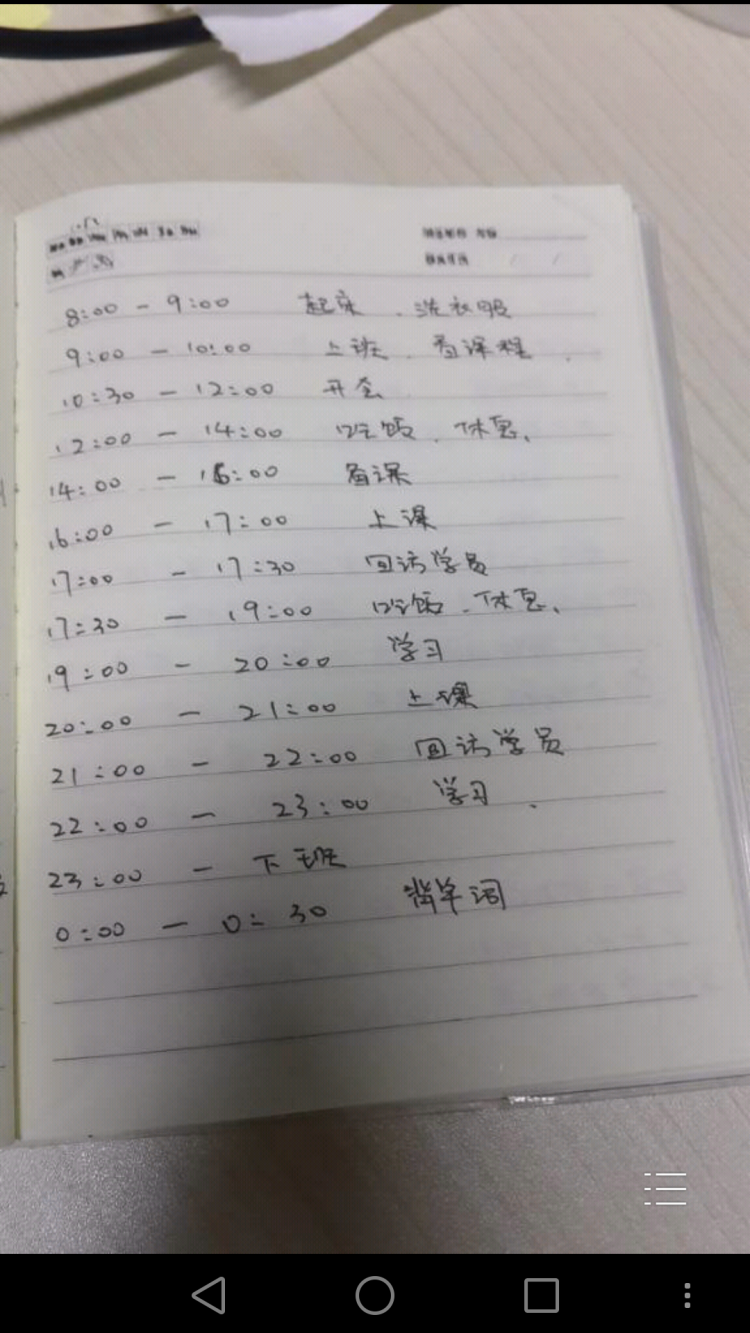 8:00 - 9:00 起床、洗衣服
9:00 - 10:00 上班、看课程
10:30 - 12:00 开会
12:00 - 14:00 吃饭、休息、
14:00 - 16:00 备课
16:00 - 17:00 上课
17:00 - 17:30 回访学员
17:30 - 19:00 吃饭、休息、
19:00 - 20:00 学习
20:00 - 21:00 上课
21:00 - 22:00 回访学员
22:00 - 23:00 学习
23:00 - 下班
0:00 - 0:30 背单词